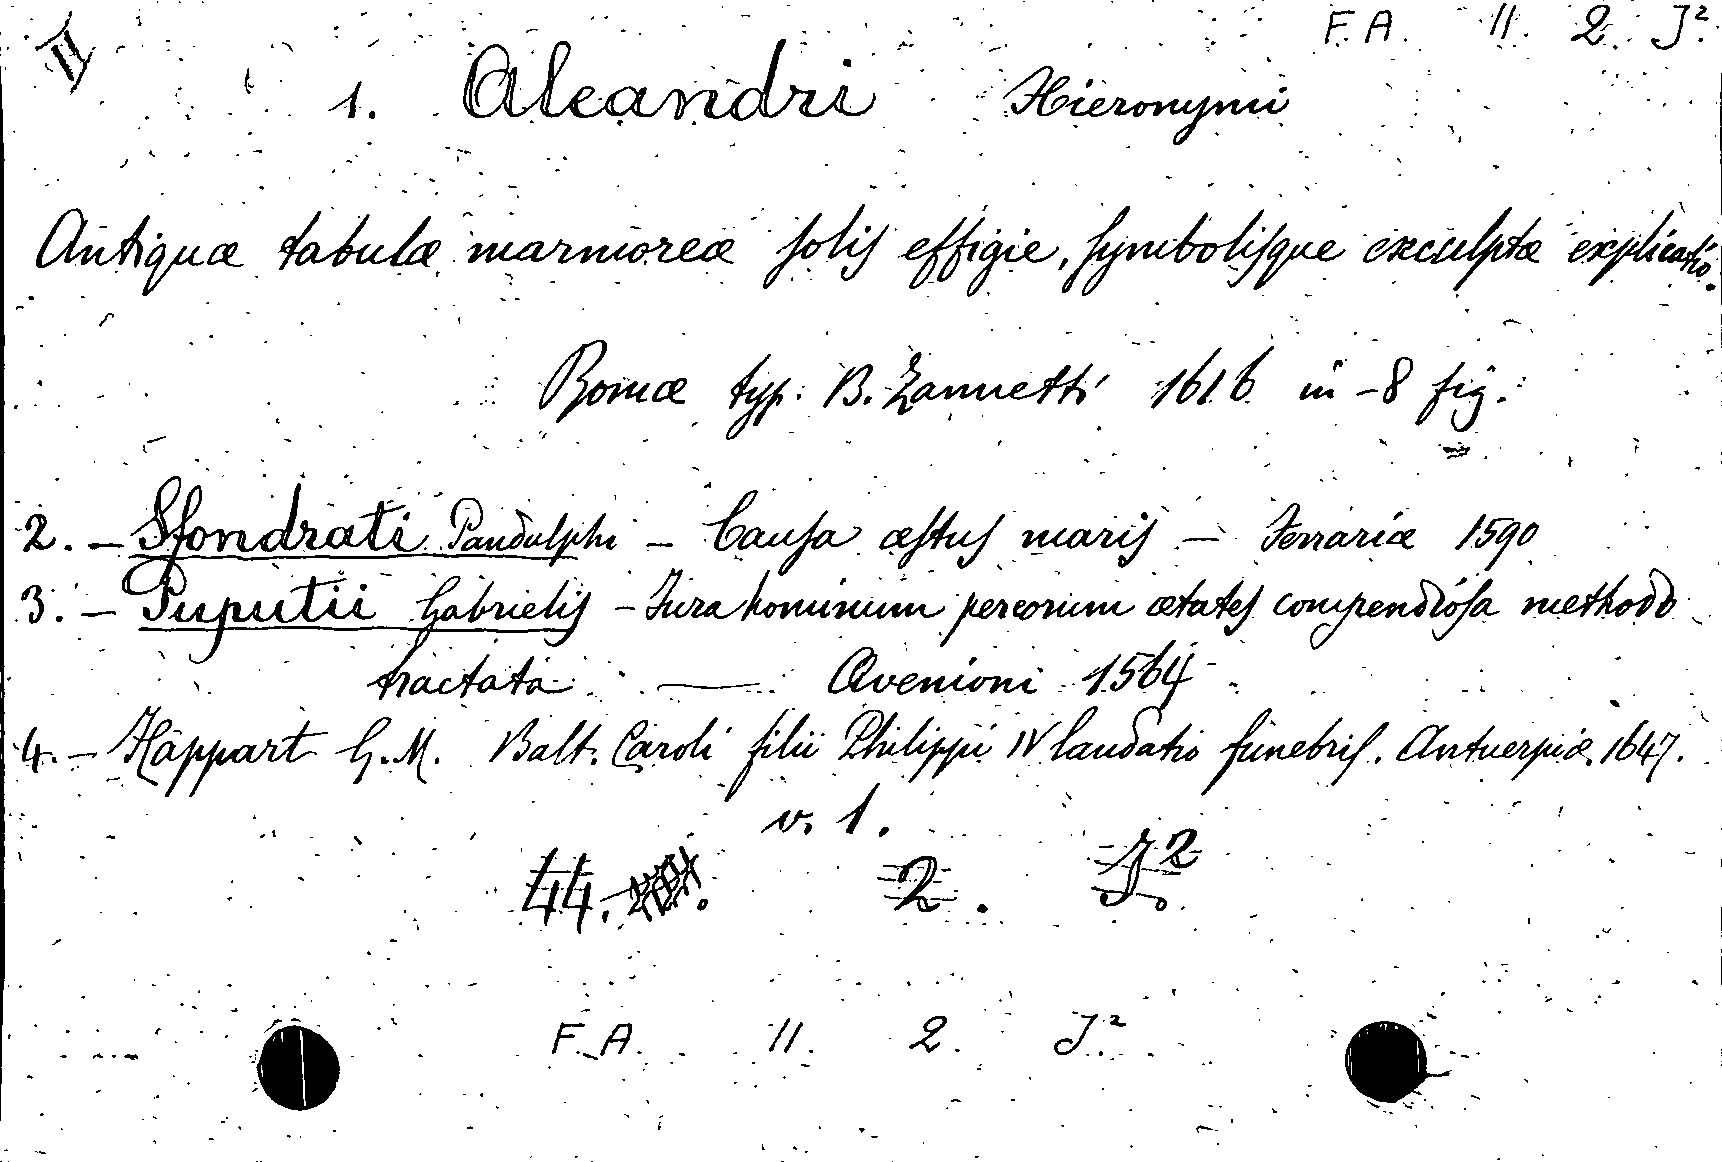 II F.A. II. 2. J².
1. Aleandri Hieronymi
Antiquæ tabulæ marmoreæ solis effigie, symbolisque exculptæ explicatio.
Romæ typ. B. Zannetti 1616 in -8 fig.
2. - Sfondrati Pandulphi - Causa æstus maris - Ferrariæ 1590
3. - Puputii Gabrielis - Jura hominum pereorum ætates compendiosa methodo
tractata — Avenioni 1564
4. - Happart G. M. Balt. Caroli filii Philippi IV laudatio funebris. Antuerpiæ 1647.
v. 1.
44. 2. J².
F. A. II. 2. J².